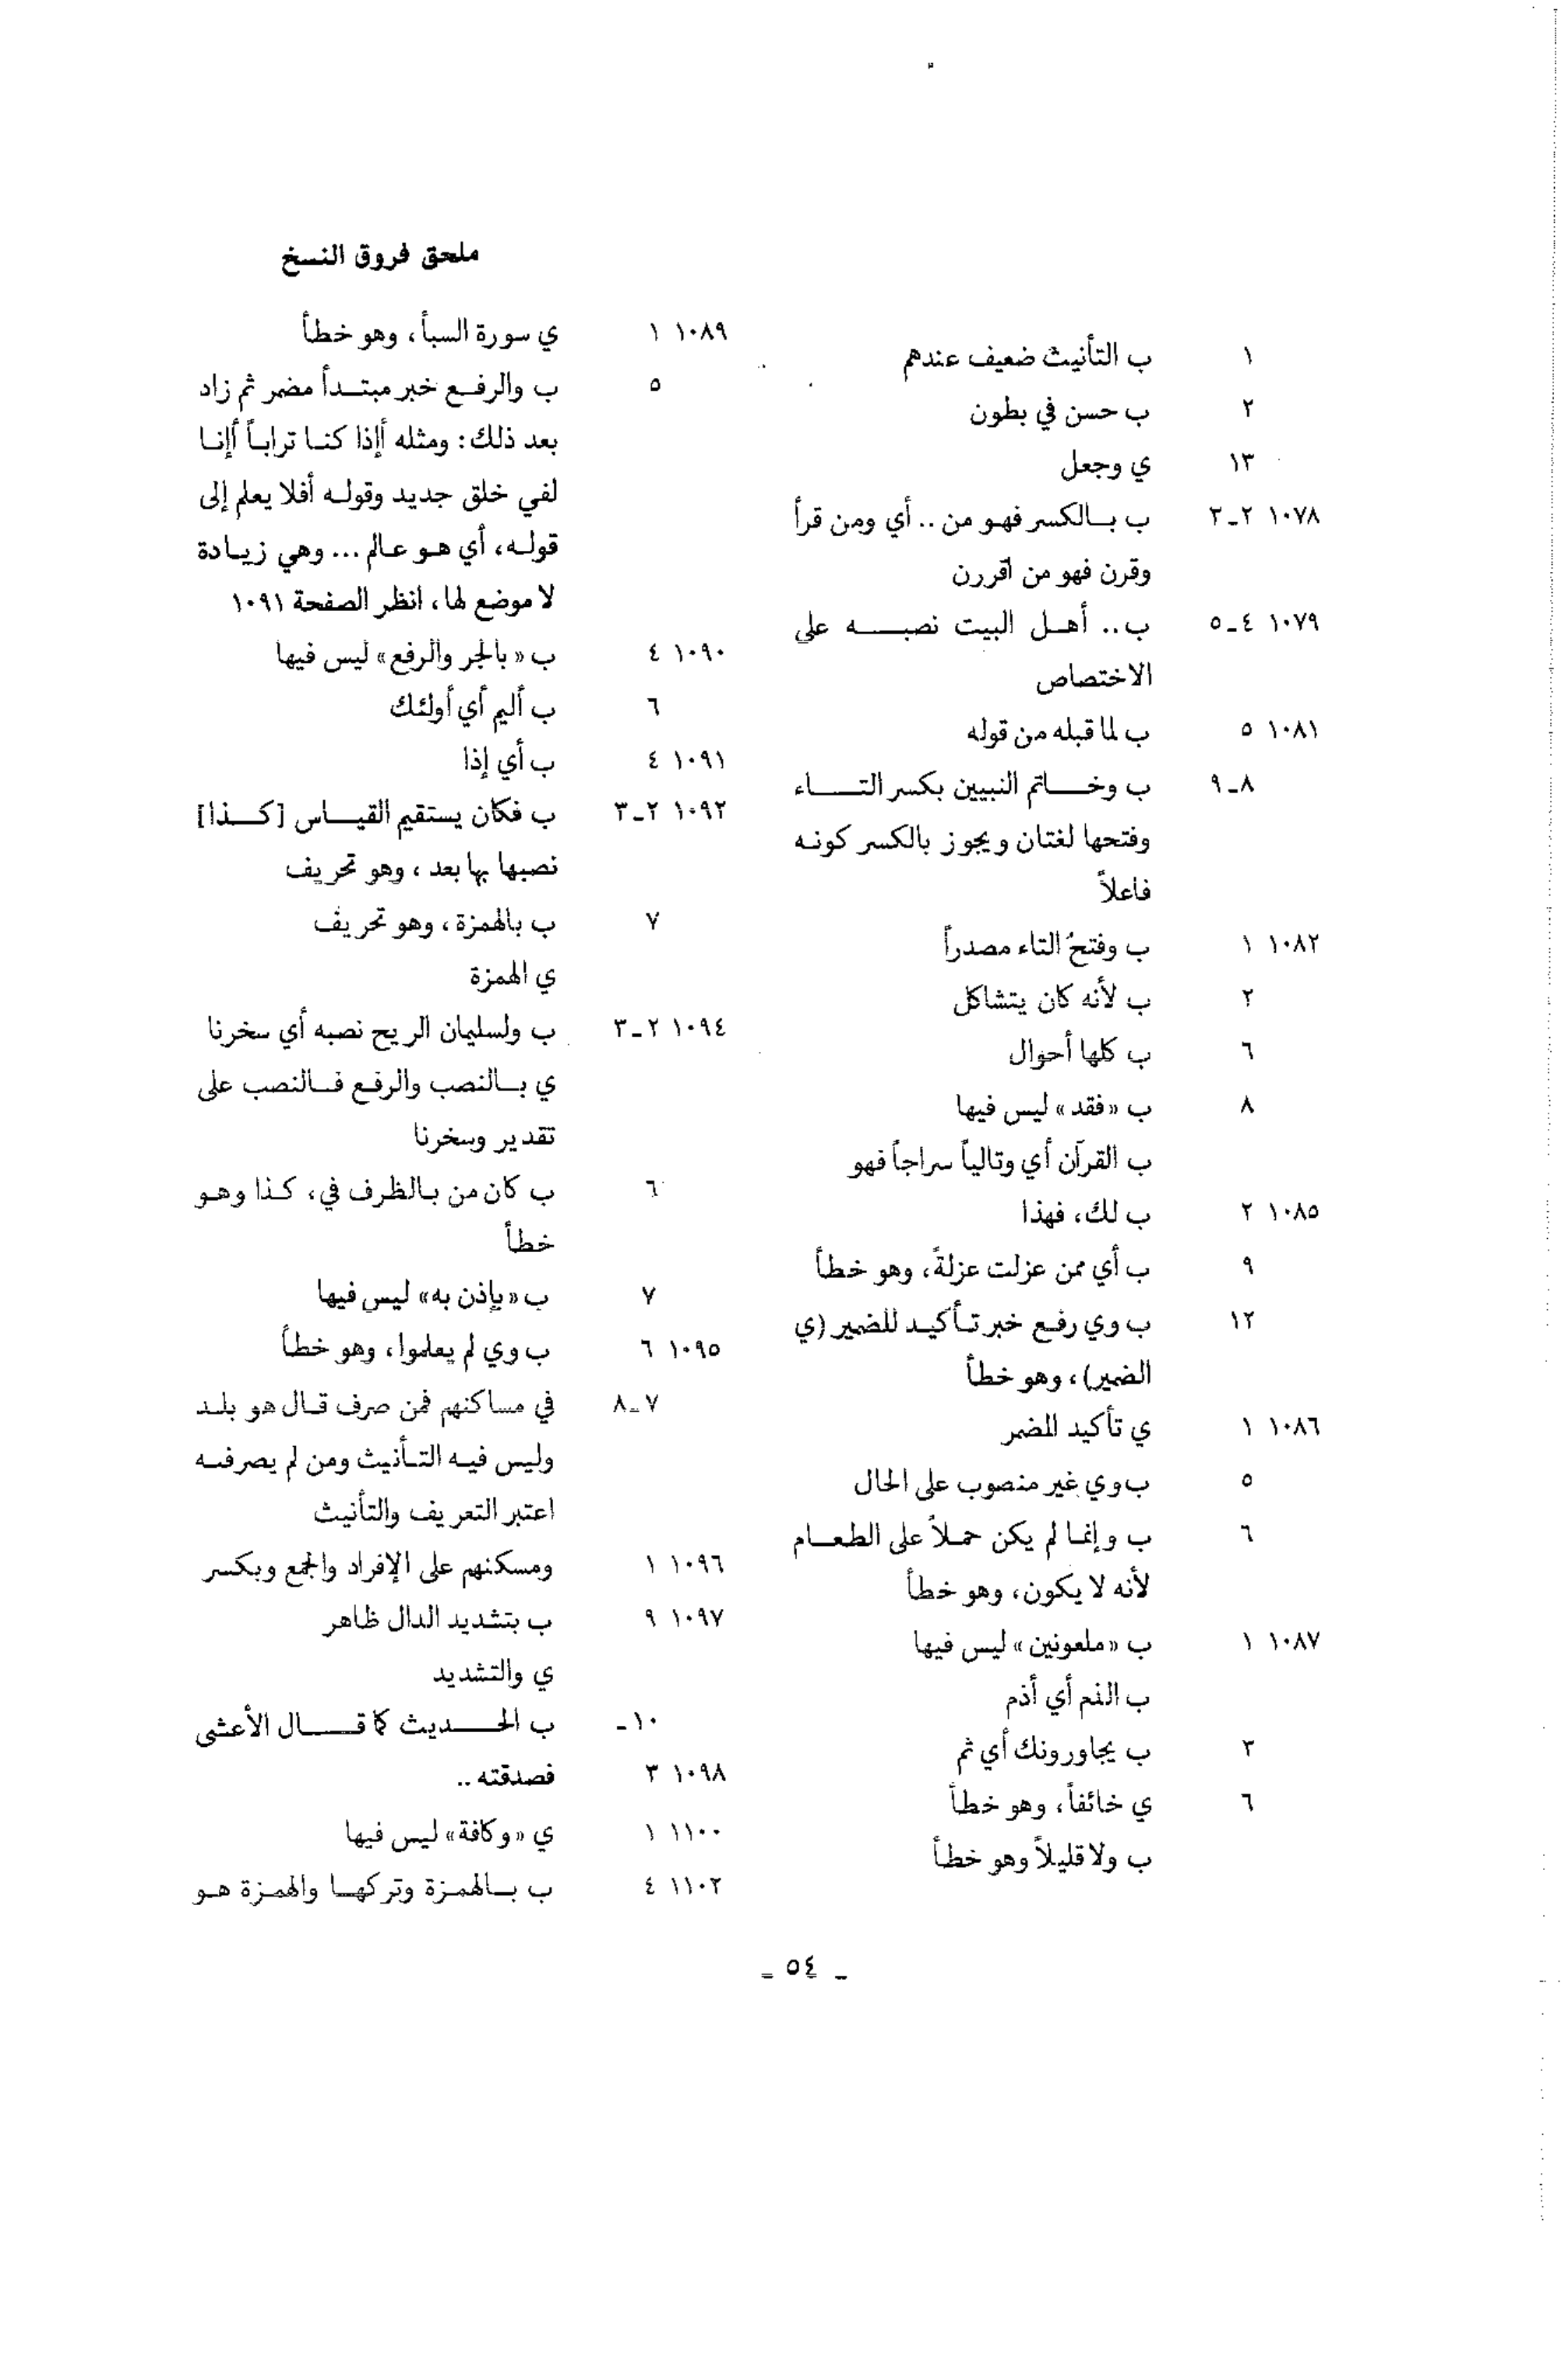 ملحق فروق النسخ
١ ب التأنيث ضعيف عندهم
٢ ب حسن في بطون
١٣ ي وجعل
١٠٧٨ ٢ـ٣ ب بالكسر فهو من .. أي ومن قرأ
وقرن فهو من اقررن
١٠٧٩ ٤ـ٥ ب .. أهل البيت نصبه على
الاختصاص
١٠٨١ ٥ ب لما قبله من قوله
٨ـ٩ ب وخاتم النبيين بكسر التاء
وفتحها لغتان ويجوز بالكسر كونه
فاعلاً
١٠٨٢ ١ ب وفتحُ التاء مصدراً
٢ ب لأنه كان يتشاكل
٦ ب كلها أحوال
٨ ب «فقد» ليس فيها
ب القرآن أي وتالياً سراجاً فهو
١٠٨٥ ٢ ب لك، فهذا
٩ ب أي ممن عزلت عزلةً، وهو خطأ
١٢ ب وي رفع خبر تأكيد للضمير (ي
الضمير)، وهو خطأ
١٠٨٦ ١ ي تأكيد للمضمر
٥ ب وي غير منصوب على الحال
٦ ب وإنما لم يكن حملاً على الطعام
لأنه لا يكون، وهو خطأ
١٠٨٧ ١ ب «ملعونين» ليس فيها
ب الذم أي أذم
٣ ب يجاورونك أي ثم
٦ ي خائفاً، وهو خطأ
ب ولا قليلاً وهو خطأ
١٠٨٩ ١ ي سورة السبأ، وهو خطأ
٥ ب والرفع خبر مبتدأ مضمر ثم زاد
بعد ذلك: ومثله أإذا كنا تراباً أإنا
لفي خلق جديد وقوله أفلا يعلم إلى
قوله، أي هو عالم ... وهي زيادة
لا موضع لها، انظر الصفحة ١٠٩١
١٠٩٠ ٤ ب «بالجر والرفع» ليس فيها
٦ ب أليم أي أولئك
١٠٩١ ٤ ب أي إذا
١٠٩٢ ٢ـ٣ ب فكان يستقيم القياس [كذا]
نصبها بها بعد، وهو تحريف
٧ ب بالهمزة، وهو تحريف
ي الهمزة
١٠٩٤ ٢ـ٣ ب ولسليمان الريح نصبه أي سخرنا
ي بالنصب والرفع فالنصب على
تقدير وسخرنا
٦ ب كان من بالظرف في، كذا وهو
خطأ
٧ ب «بإذن به» ليس فيها
١٠٩٥ ٦ ب وي لم يعلموا، وهو خطأ
٧ـ٨ في مساكنهم فمن صرف قال هو بلد
وليس فيه التأنيث ومن لم يصرفه
اعتبر التعريف والتأنيث
١٠٩٦ ١ ومسكنهم على الإفراد والجمع وبكسر
١٠٩٧ ٩ ب بتشديد الدال ظاهر
ي والتشديد
١٠ـ ب الحديث كما قال الأعشى
١٠٩٨ ٣ فصدقته ..
١١٠٠ ١ ي «وكافة» ليس فيها
١١٠٢ ٤ ب بالهمزة وتركها والهمزة هو
ـ ٥٤ ـ